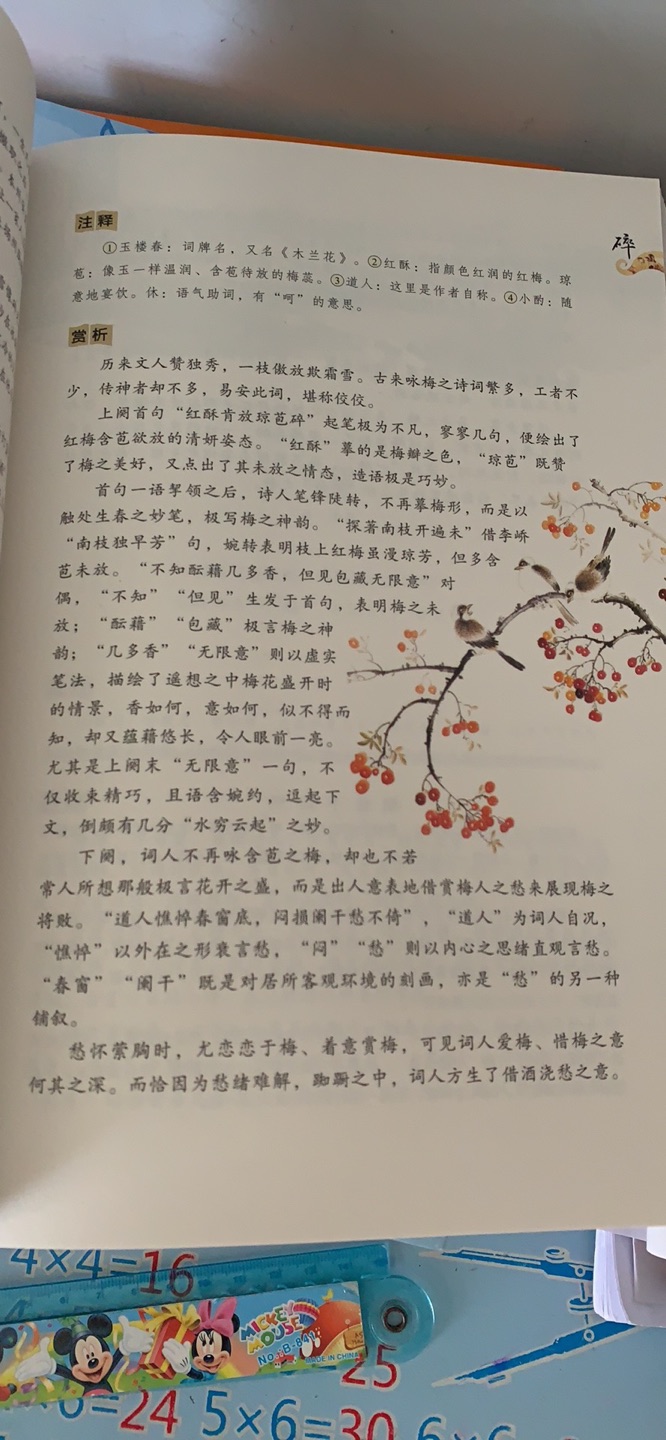 碎
注释
①玉楼春：词牌名，又名《木兰花》。②红酥：指颜色红润的红梅。琼
苞：像玉一样温润、含苞待放的梅蕊。③道人：这里是作者自称。④小酌：随
意地宴饮。休：语气助词，有“呵”的意思。
赏析
历来文人赞独秀，一枝傲放欺霜雪。古来咏梅之诗词繁多，工者不
少，传神者却不多，易安此词，堪称佼佼。
上阕首句“红酥肯放琼苞碎”起笔极为不凡，寥寥几句，便绘出了
红梅含苞欲放的清妍姿态。“红酥”摹的是梅瓣之色，“琼苞”既赞
了梅之美好，又点出了其未放之情态，造语极是巧妙。
首句一语挈领之后，诗人笔锋陡转，不再摹梅形，而是以
触处生春之妙笔，极写梅之神韵。“探著南枝开遍未”借李峤
“南枝独早芳”句，婉转表明枝上红梅虽漫琼芳，但多含
苞未放。“不知酝藉几多香，但见包藏无限意”对
偶，“不知”“但见”生发于首句，表明梅之未
放；“酝藉”“包藏”极言梅之神
韵；“几多香”“无限意”则以虚实
笔法，描绘了遥想之中梅花盛开时
的情景，香如何，意如何，似不得而
知，却又蕴藉悠长，令人眼前一亮。
尤其是上阕末“无限意”一句，不
仅收束精巧，且语含婉约，逗起下
文，倒颇有几分“水穷云起”之妙。
下阕，词人不再咏含苞之梅，却也不若
常人所想那般极言花开之盛，而是出人意表地借赏梅人之愁来展现梅之
将败。“道人憔悴春窗底，闷损阑干愁不倚”，“道人”为词人自况，
“憔悴”以外在之形衰言愁，“闷”“愁”则以内心之思绪直观言愁。
“春窗”“阑干”既是对居所客观环境的刻画，亦是“愁”的另一种
铺叙。
愁怀萦胸时，尤恋恋于梅、着意赏梅，可见词人爱梅、惜梅之意
何其之深。而恰因为愁绪难解，踟蹰之中，词人方生了借酒浇愁之意。
4×4=16
MICKEY
MOUSE
NO:B-841
MADE IN CHINA
25
=24 5×6=30 6×6